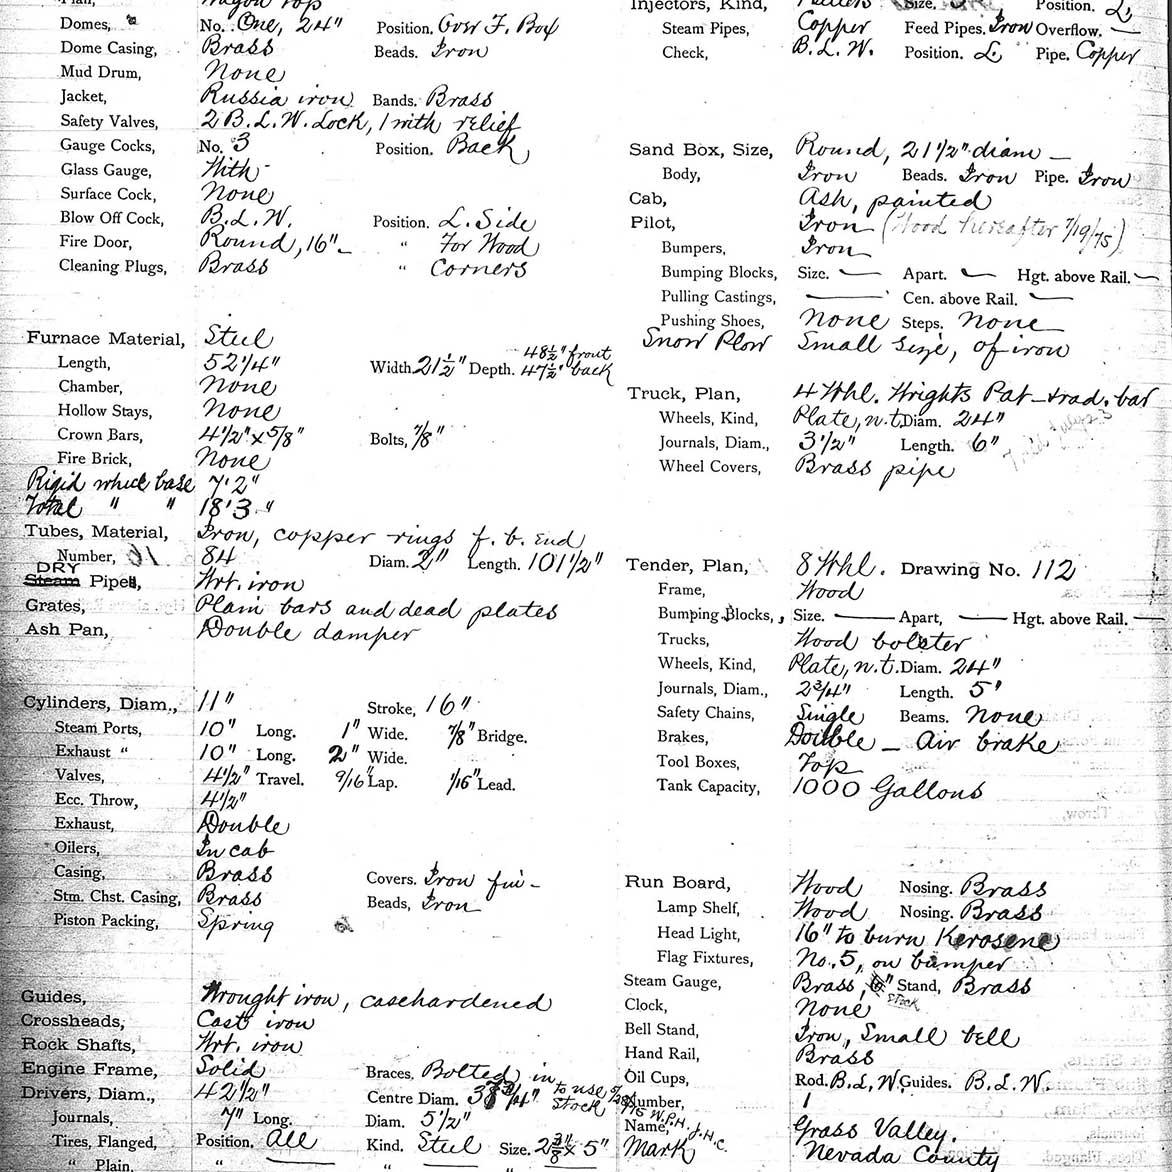 Plan, Wagon Top
Domes, No. One, 24" Position. Over F. Box
Dome Casing, Brass Beads. Iron
Mud Drum, None
Jacket, Russia iron Bands. Brass
Safety Valves, 2 B.L.W. Lock, 1 with relief
Gauge Cocks, No. 3 Position. Back
Glass Gauge, With
Surface Cock, None
Blow Off Cock, B.L.W. Position. L. Side
Fire Door, Round, 16" " For Wood
Cleaning Plugs, Brass " Corners
Furnace Material, Steel
Length, 52 1/4" Width. 21 1/2" Depth. 48 1/2" front 47 1/2" back
Chamber, None
Hollow Stays, None
Crown Bars, 4 1/2" x 5/8" Bolts, 7/8"
Fire Brick, None
Rigid wheel base 7'2"
Total " " 18'3"
Tubes, Material, Iron, copper rings f. b. end
Number, 84 Diam. 2" Length. 101 1/2"
DRY
Steam Pipes, Wrt. iron
Grates, Plain bars and dead plates
Ash Pan, Double damper
Cylinders, Diam., 11" Stroke, 16"
Steam Ports, 10" Long. 1" Wide. 7/8" Bridge.
Exhaust " 10" Long. 2" Wide.
Valves, 4 1/2" Travel. 9/16" Lap. 1/16" Lead.
Ecc. Throw, 4 1/2"
Exhaust, Double
Oilers, In cab
Casing, Brass Covers. Iron fin
Stm. Chst. Casing, Brass Beads, Iron
Piston Packing, Spring
Guides, Wrought iron, casehardened
Crossheads, Cast iron
Rock Shafts, Wrt. iron
Engine Frame, Solid Braces, Bolted in
Drivers, Diam., 42 1/2" Centre Diam. 37 3/4" to use stock
Journals, 7" Long. Diam. 5 1/2"
Tires, Flanged, Position. All Kind. Steel Size. 2 3/8" x 5"
" Plain. " " "
Injectors, Kind, Sellers Size. 3 Position. L.
Steam Pipes, Copper Feed Pipes. Iron Overflow. —
Check, B.L.W. Position. L. Pipe. Copper
Sand Box, Size, Round, 21 1/2" diam
Body, Iron Beads. Iron Pipe. Iron
Cab, Ash, painted
Pilot, Iron (Wood hereafter 7/19/75)
Bumpers, Iron
Bumping Blocks, Size. — Apart. — Hgt. above Rail. —
Pulling Castings, — Cen. above Rail. —
Pushing Shoes, None Steps. None
Snow Plow Small size, of iron
Truck, Plan, 4 Whl. Wrights Pat. rad. bar
Wheels, Kind, Plate, n.t. Diam. 24"
Journals, Diam., 3 1/2" Length. 6"
Wheel Covers, Brass pipe
Tender, Plan, 8 Whl. Drawing No. 112
Frame, Wood
Bumping Blocks, Size. — Apart, — Hgt. above Rail. —
Trucks, Wood bolster
Wheels, Kind, Plate, n.t. Diam. 24"
Journals, Diam., 2 3/4" Length. 5"
Safety Chains, Single Beams. None
Brakes, Double — Air brake
Tool Boxes, Top
Tank Capacity, 1000 Gallons
Run Board, Wood Nosing. Brass
Lamp Shelf, Wood Nosing. Brass
Head Light, 16" to burn Kerosene
Flag Fixtures, No. 5, on bumper
Steam Gauge, Brass, 6" Stand, Brass
stock
Clock, None
Bell Stand, Iron, Small bell
Hand Rail, Brass
Oil Cups, Rod. B.L.W. Guides. B.L.W.
Number, 1
W.P.H. J.H.C.
Name, Grass Valley.
Mark Nevada County